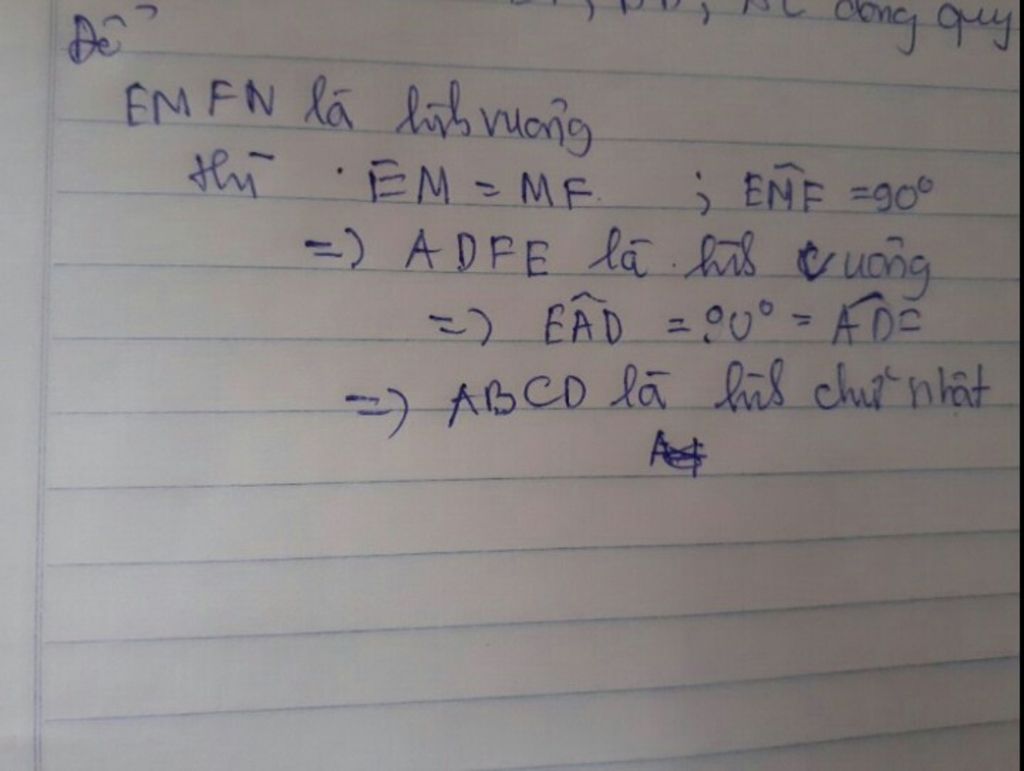 EF, BD, AC đồng quy
Để
EMFN là hình vuông
thì EM = MF ; EMF = 90°
=> ADFE là hình vuông
=> EAD = 90° = ADF
=> ABCD là hình chữ nhật